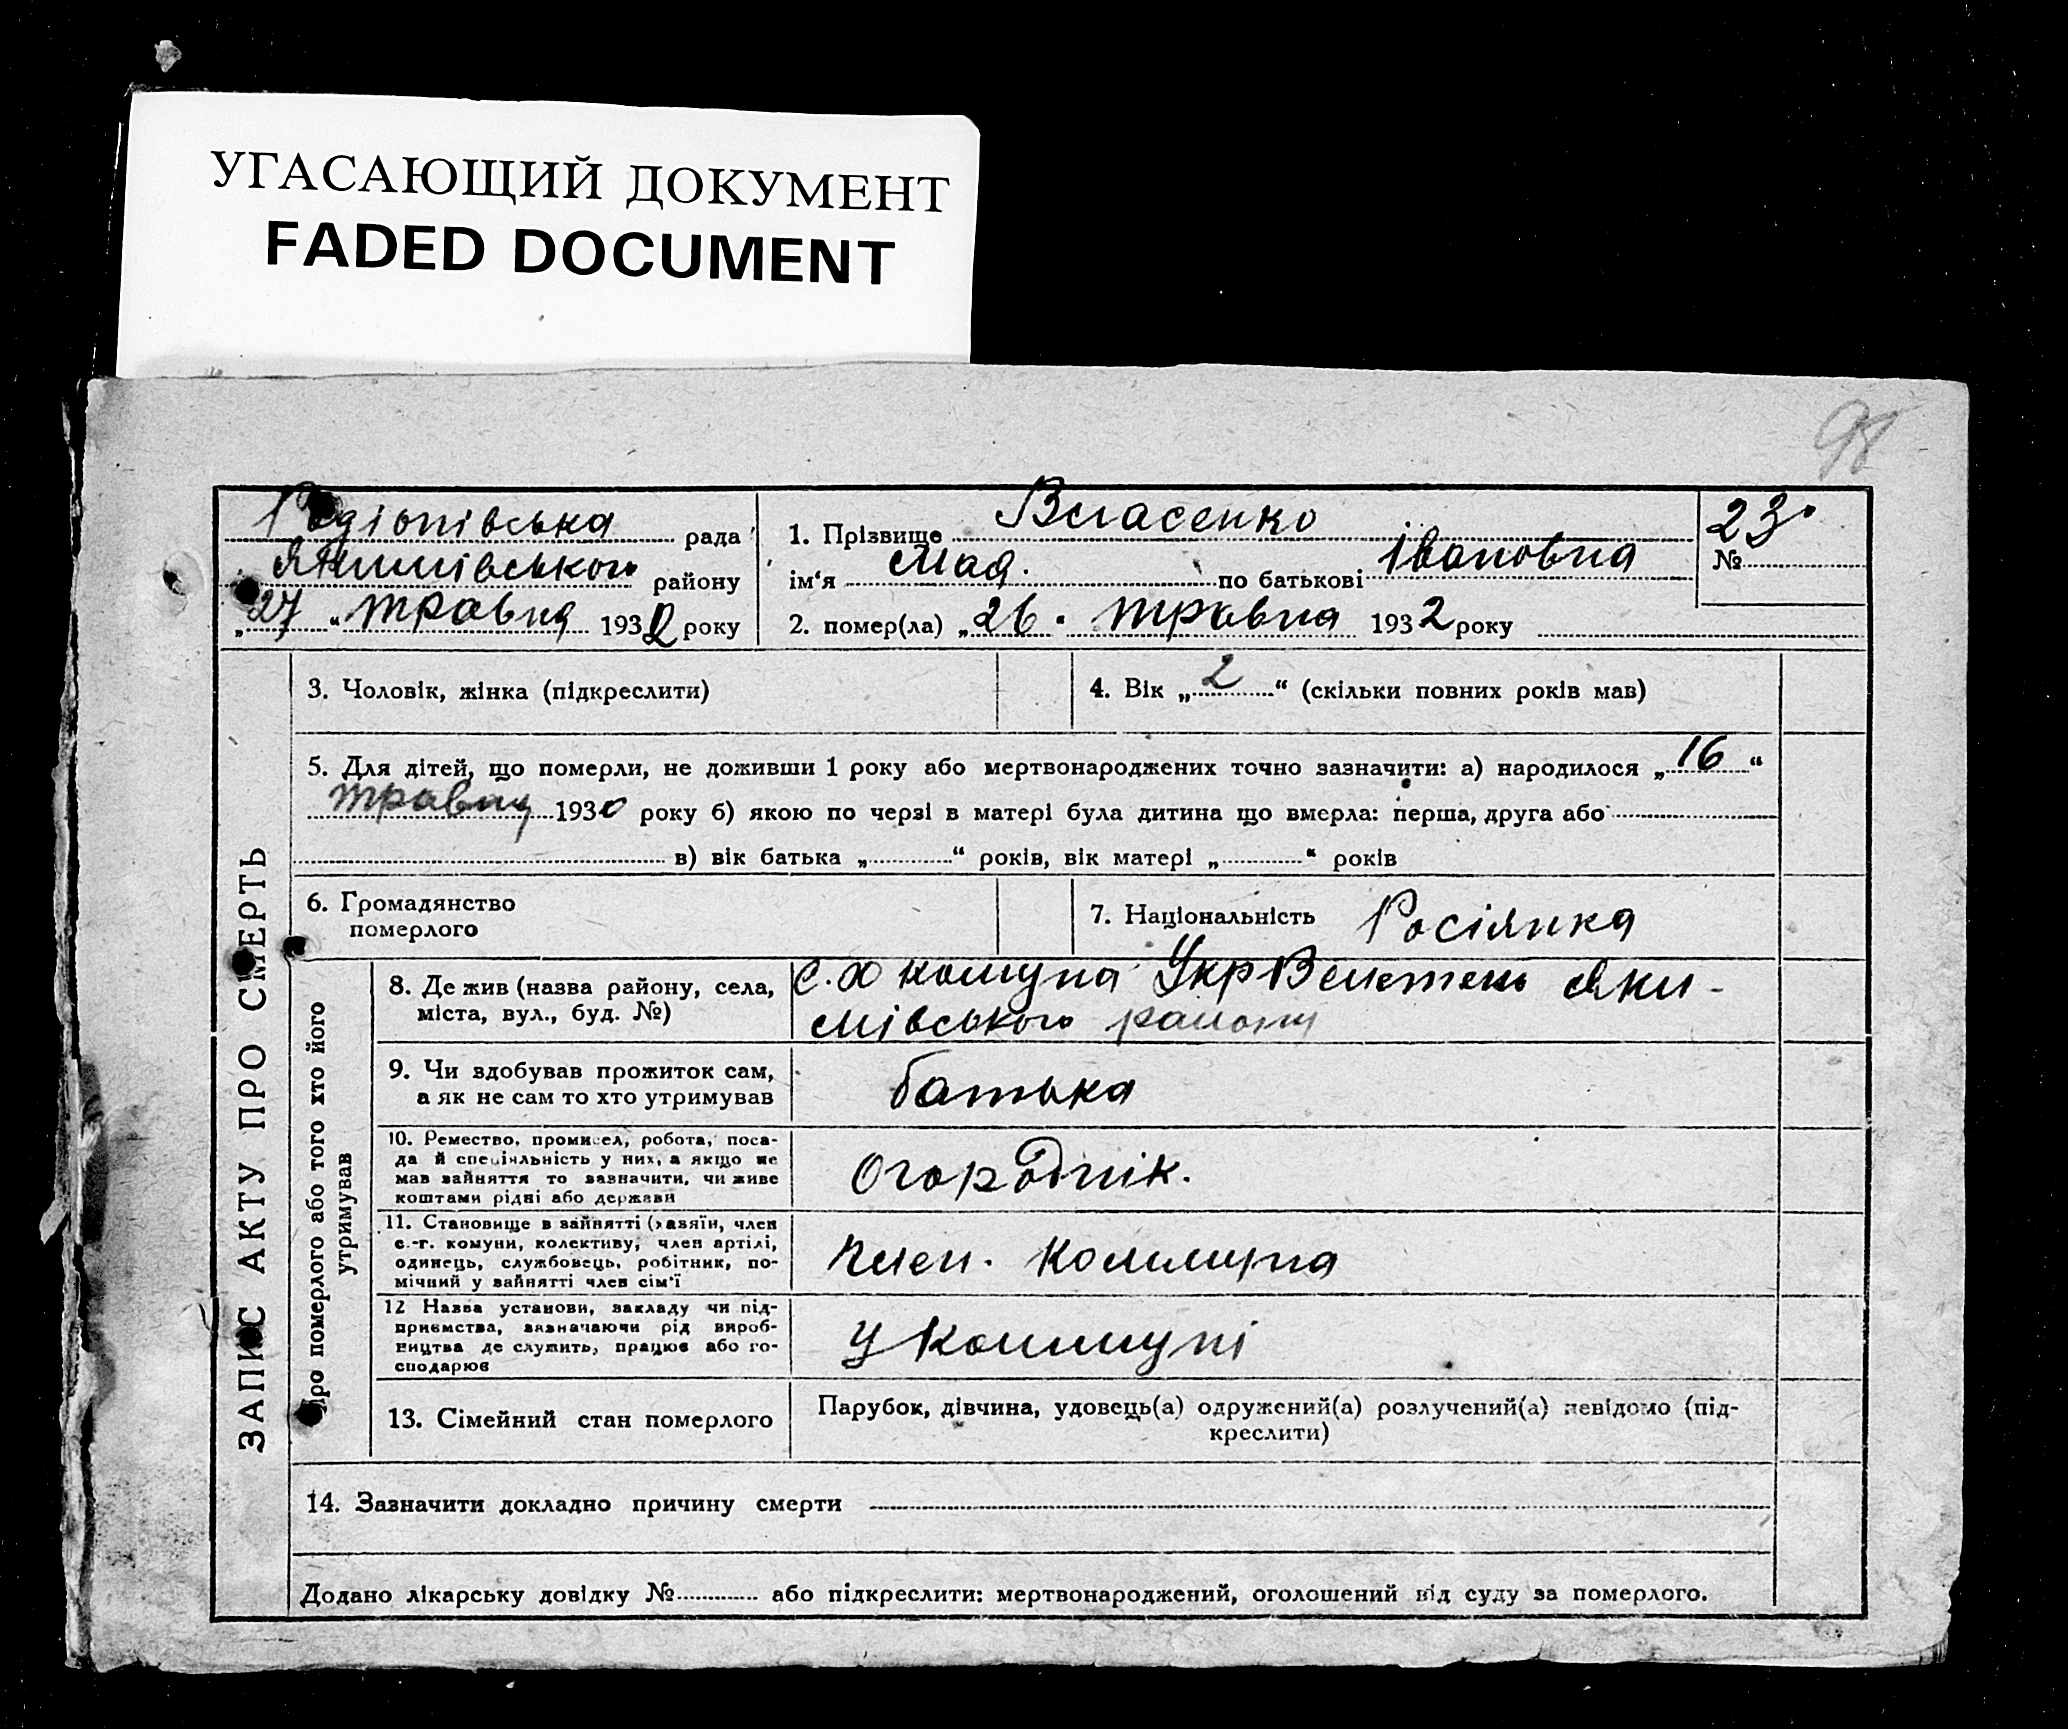 УГАСАЮЩИЙ ДОКУМЕНТ
FADED DOCUMENT
98
Родіонівська рада
Якимівського району
„27“ травня 1932 року
1. Прізвище Власенко
ім‘я Мая. по батькові Івановна
2. помер(ла) „26. травня 1932 року
23.
№
ЗАПИС АКТУ ПРО СМЕРТЬ
3. Чоловік, жінка (підкреслити)
4. Вік „2“ (скільки повних років мав)
5. Для дітей, що померли, не доживши 1 року або мертвонароджених точно зазначити: а) народилося „16“
травня 1930 року б) якою по черзі в матері була дитина що вмерла: перша, друга або
в) вік батька „ “ років, вік матері „ “ років
6. Громадянство
померлого
7. Національність Росіянка
Про померлого або того хто його
утримував
8. Де жив (назва району, села,
міста, вул., буд. №)
С.Х комуна Укр Велетень Яки-
мівського району
9. Чи здобував прожиток сам,
а як не сам то хто утримував
батька
10. Ремество, промисел, робота, поса-
да й спеціяльність у них, а якщо не
мав зайняття то зазначити, чи живе
коштами рідні або держави
Огородник.
11. Становище в зайнятті (хазяїн, член
с.-г. комуни, колективу, член артілі,
одинець, службовець, робітник, по-
мічний у зайнятті член сім'ї
Член. Коммуна
12 Назва установи, закладу чи під-
приємства, зазначаючи рід вироб-
ництва де служить, працює або го-
сподарює
У Коммуні
13. Сімейний стан померлого
Парубок, дівчина, удовець(а) одружений(а) розлучений(а) невідомо (під-
креслити)
14. Зазначити докладно причину смерти
Додано лікарську довідку № або підкреслити: мертвонароджений, оголошений від суду за померлого.